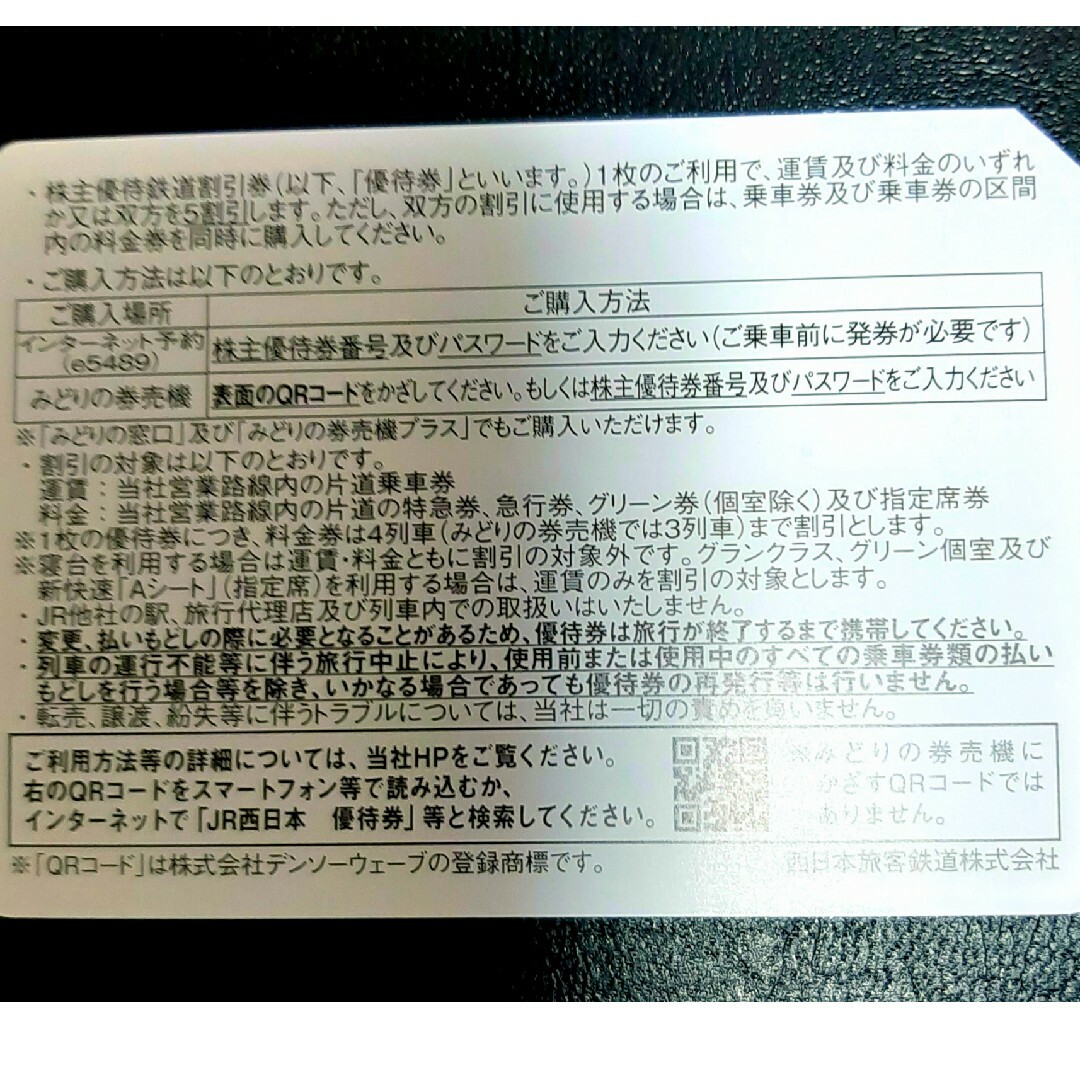 ・株主優待鉄道割引券(以下、「優待券」といいます。)1枚のご利用で、運賃及び料金のいずれ
か又は双方を5割引します。ただし、双方の割引に使用する場合は、乗車券及び乗車券の区間
内の料金券を同時に購入してください。
・ご購入方法は以下のとおりです。
ご購入場所 ご購入方法
インターネット予約
(e5489) 株主優待券番号及びパスワードをご入力ください(ご乗車前に発券が必要です)
みどりの券売機 表面のQRコードをかざしてください。もしくは株主優待券番号及びパスワードをご入力ください
※「みどりの窓口」及び「みどりの券売機プラス」でもご購入いただけます。
・割引の対象は以下のとおりです。
運賃:当社営業路線内の片道乗車券
料金:当社営業路線内の片道の特急券、急行券、グリーン券(個室除く)及び指定席券
※1枚の優待券につき、料金券は4列車(みどりの券売機では3列車)まで割引とします。
※寝台を利用する場合は運賃・料金ともに割引の対象外です。グランクラス、グリーン個室及び
新快速「Aシート」(指定席)を利用する場合は、運賃のみを割引の対象とします。
・JR他社の駅、旅行代理店及び列車内での取扱いはいたしません。
・変更、払いもどしの際に必要となることがあるため、優待券は旅行が終了するまで携帯してください。
・列車の運行不能等に伴う旅行中止により、使用前または使用中のすべての乗車券類の払い
もどしを行う場合等を除き、いかなる場合であっても優待券の再発行等は行いません。
・転売、譲渡、紛失等に伴うトラブルについては、当社は一切の責めを負いません。
ご利用方法等の詳細については、当社HPをご覧ください。
右のQRコードをスマートフォン等で読み込むか、
インターネットで「JR西日本 優待券」等と検索してください。
※みどりの券売機に
かざすQRコードでは
ありません。
※「QRコード」は株式会社デンソーウェーブの登録商標です。
西日本旅客鉄道株式会社